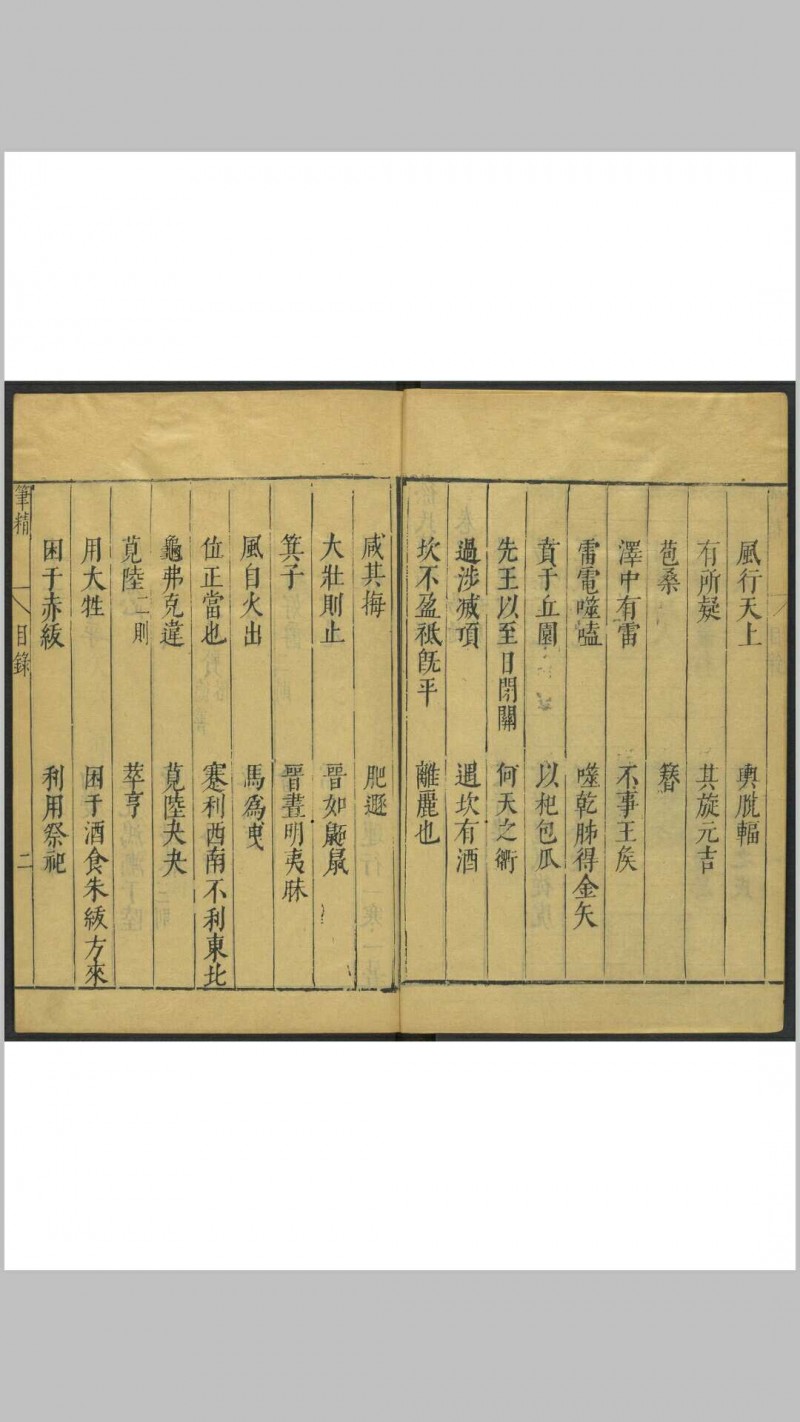 風行天上　輿脫輻
有所疑　其旋元吉
苞桑　簪
澤中有雷　不事王矦
雷電噬嗑　噬乾胏得金矢
賁于丘園　以杞包瓜
先王以至日閉關　何天之衢
過涉滅頂　遇坎有酒
坎不盈祗旣平　離麗也
咸其脢　肥遯
大壯則止　晉如鼫鼠
箕子　晉晝明夷昧
風自火出　馬爲曳
位正當也　蹇利西南不利東北
龜弗克違　莧陸夬夬
莧陸二則　萃亨
用大牲　困于酒食朱紱方來
困于赤紱　利用祭祀
筆精　一　目錄　二